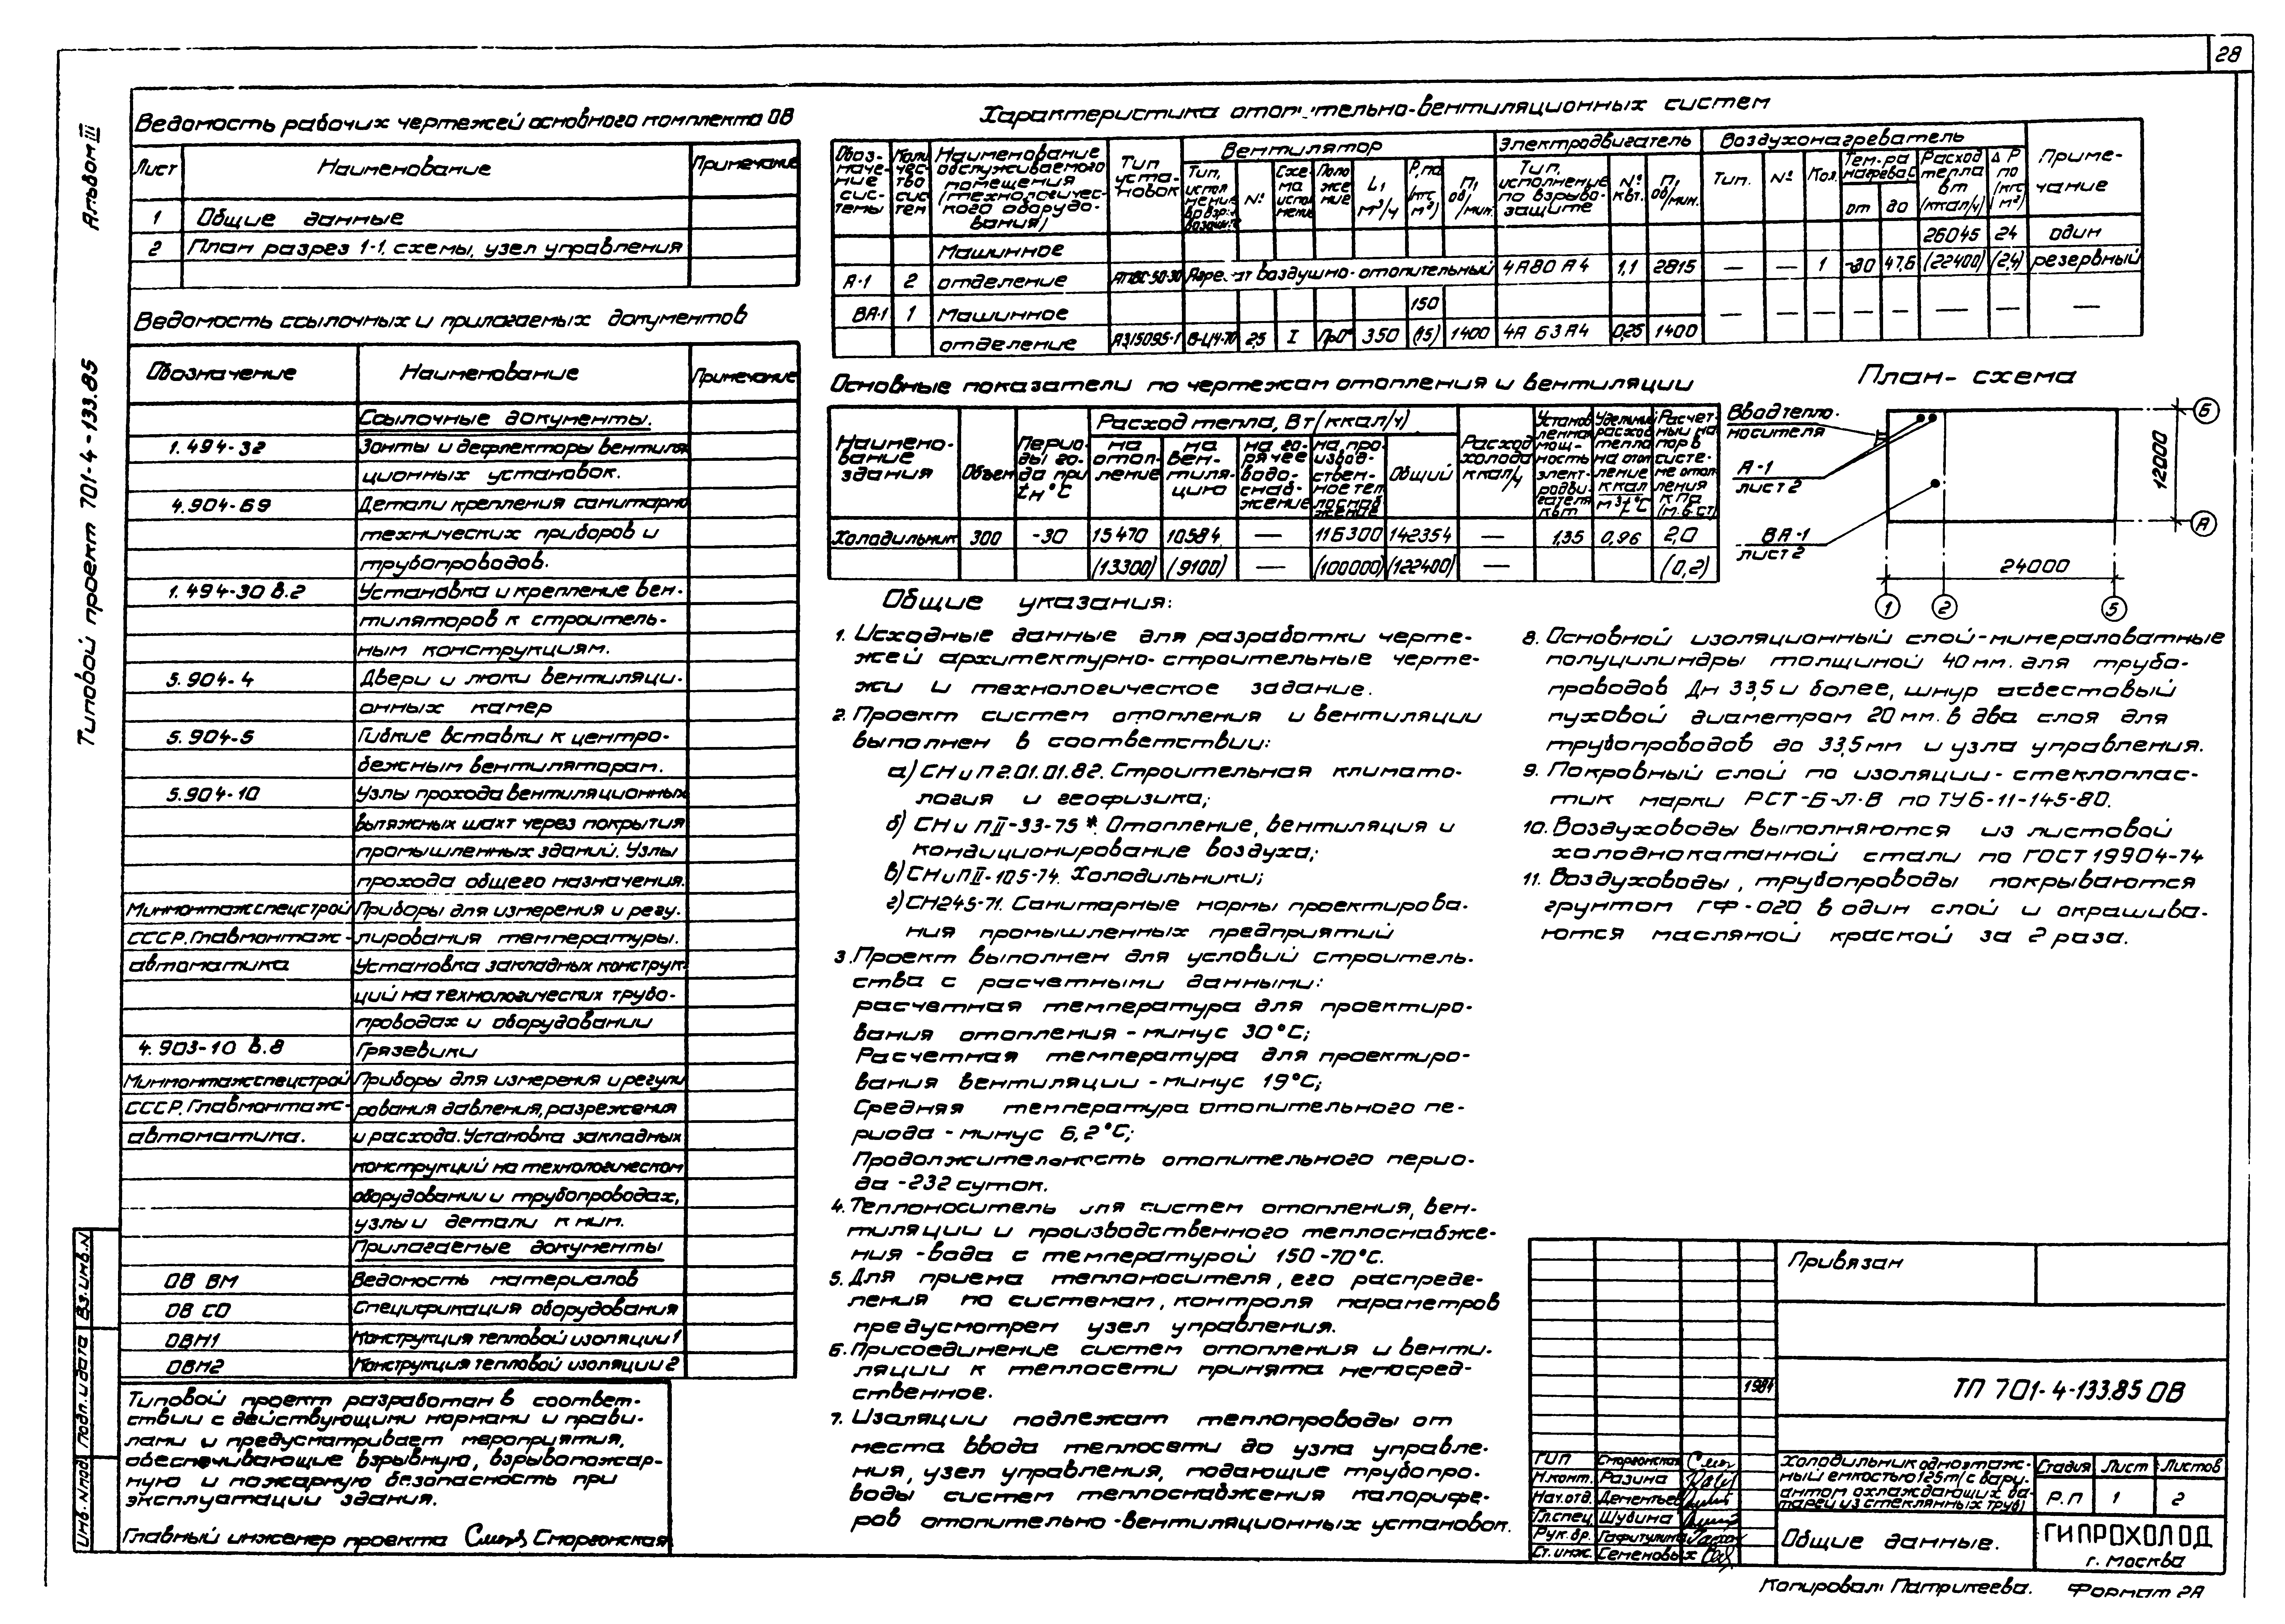 28
Альбом III
Типовой проект 701-4-133.85
Ведомость рабочих чертежей основного комплекта ОВ
Лист Наименование Примечание
1 Общие данные
2 План разрез 1-1, схемы, узел управления
Ведомость ссылочных и прилагаемых документов
Обозначение Наименование Примечание
Ссылочные документы.
1.494-32 Зонты и дефлекторы вентиля
ционных установок.
4.904-69 Детали крепления санитарно
технических приборов и
трубопроводов.
1.494-30 в.2 Установка и крепление вен-
тиляторов к строитель-
ным конструкциям.
5.904-4 Двери и люки вентиляци-
онных камер
5.904-5 Гибкие вставки к центро-
бежным вентиляторам.
5.904-10 Узлы прохода вентиляционных
вытяжных шахт через покрытия
промышленных зданий. Узлы
прохода общего назначения.
Минмонтажспецстрой Приборы для измерения и регу-
СССР. Главмонтаж- лирования температуры.
автоматика Установка закладных конструк-
ций на технологических трубо-
проводах и оборудовании
4.903-10 в.8 Грязевики
Минмонтажспецстрой Приборы для измерения и регули
СССР. Главмонтаж- рования давления, разрежения
автоматика. и расхода. Установка закладных
конструкций на технологическом
оборудовании и трубопроводах,
узлы и детали к ним.
Прилагаемые документы
ОВ ВМ Ведомость материалов
ОВ СО Спецификация оборудования
ОВН1 Конструкция тепловой изоляции 1
ОВН2 Конструкция тепловой изоляции 2
Типовой проект разработан в соответ-
ствии с действующими нормами и прави-
лами и предусматривает мероприятия,
обеспечивающие взрывную, взрывопожар-
ную и пожарную безопасность при
эксплуатации здания.
Главный инженер проекта Сморгонская
Инв. N подл. Подп. и дата Вз. инв. N
Характеристика отопительно-вентиляционных систем
Обоз-наче-ние сис-темы
Коли чес-тво сис тем
Наименование обслуживаемого помещения (технологичес-кого оборудо-вания)
Тип уста-новок
Вентилятор
№
Схе-ма испол нения
Поло же ние
L, м³/ч
P, па (кгс м²)
п, об/мин.
Электродвигатель
Тип, исполнение по взрыво-защите
N квт.
п, об/мин.
Воздухонагреватель
Тип.
№
Кол.
Тем-ра нагрева °С
от до
Расход тепла вт (ккал/ч)
Δ P по (кгс м²)
Приме-чание
А-1 2 Машинное отделение Агрегат воздушно-отопительный 4А80А4 1,1 2815 — — 1 -30 47,6 26045 (22400) 24 (2,4) один резервный
ВА-1 1 Машинное отделение В-Ц4-70 2,5 I Пр0° 350 150 (15) 1400 4А 63А4 0,25 1400 — — — — — — — —
Основные показатели по чертежам отопления и вентиляции
Наимено-вание здания
Объем
Перио-ды го-да при tн °С
Расход тепла, Вт/(ккал/ч)
на отоп-ление
на вен-тиля-цию
на го-рячее водо-снаб-жение
на про-извод-ствен-ное теп лоснаб жение
Общий
Расход холода ккал/ч
Установ ленная мощ-ность элект-родви-гателя квт
Удельный расход тепла на отоп ление ккал м³ч°С
Расчет-ный на пор в систе-ме отоп ления кПа (м.в.ст)
Холодильник 300 -30 15470 10584 — 116300 142354 — 1,35 0,96 2,0
(13300) (9100) — (100000) (122400) — (0,2)
План-схема
Ввод тепло-
носителя
А-1
лист 2
ВА-1
лист 2
12000
24000
Б
А
1 2 5
Общие указания:
1. Исходные данные для разработки черте-
жей архитектурно-строительные черте-
жи и технологическое задание.
2. Проект систем отопления и вентиляции
выполнен в соответствии:
а) СНиП 2.01.01.82. Строительная климато-
логия и геофизика;
б) СНиП II-33-75*. Отопление, вентиляция и
кондиционирование воздуха;
в) СНиП II-105-74. Холодильники;
г) СН245-71. Санитарные нормы проектирова-
ния промышленных предприятий
3. Проект выполнен для условий строитель-
ства с расчетными данными:
расчетная температура для проектиро-
вания отопления - минус 30°С;
Расчетная температура для проектиро-
вания вентиляции - минус 19°С;
Средняя температура отопительного пе-
риода - минус 6,2°С;
Продолжительность отопительного перио-
да -232 суток.
4. Теплоноситель для систем отопления, вен-
тиляции и производственного теплоснабже-
ния - вода с температурой 150-70°С.
5. Для приема теплоносителя, его распреде-
ления по системам, контроля параметров
предусмотрен узел управления.
6. Присоединение систем отопления и венти-
ляции к теплосети принята непосред-
ственное.
7. Изоляции подлежат теплопроводы от
места ввода теплосети до узла управле-
ния, узел управления, подающие трубопро-
воды систем теплоснабжения калорифе-
ров отопительно-вентиляционных установок.
8. Основной изоляционный слой-минераловатные
полуцилиндры толщиной 40мм. для трубо-
проводов Дн 33,5 и более, шнур асбестовый
пуховой диаметром 20мм. в два слоя для
трубопроводов до 33,5мм и узла управления.
9. Покровный слой по изоляции-стеклоплас-
тик марки РСТ-Б-Л-В по ТУ6-11-145-80.
10. Воздуховоды выполняются из листовой
холоднокатанной стали по ГОСТ 19904-74
11. Воздуховоды, трубопроводы покрываются
грунтом ГФ-020 в один слой и окрашива-
ются масляной краской за 2 раза.
Привязан
1984
ТП 701-4-133.85 ОВ
ГИП Сморгонская
Н.конт. Разина
Нач.отд. Дементьев
Гл.спец. Шувина
Рук.бр. Гафитулина
Ст.инж. Семеновых
Холодильник одноэтаж-
ный емкостью 125т (с вари-
антом охлаждающих ба-
тарей из стеклянных труб)
Стадия Лист Листов
Р.П 1 2
Общие данные.
ГИПРОХОЛОД
г. Москва
Копировал: Патрикеева. Формат 2А